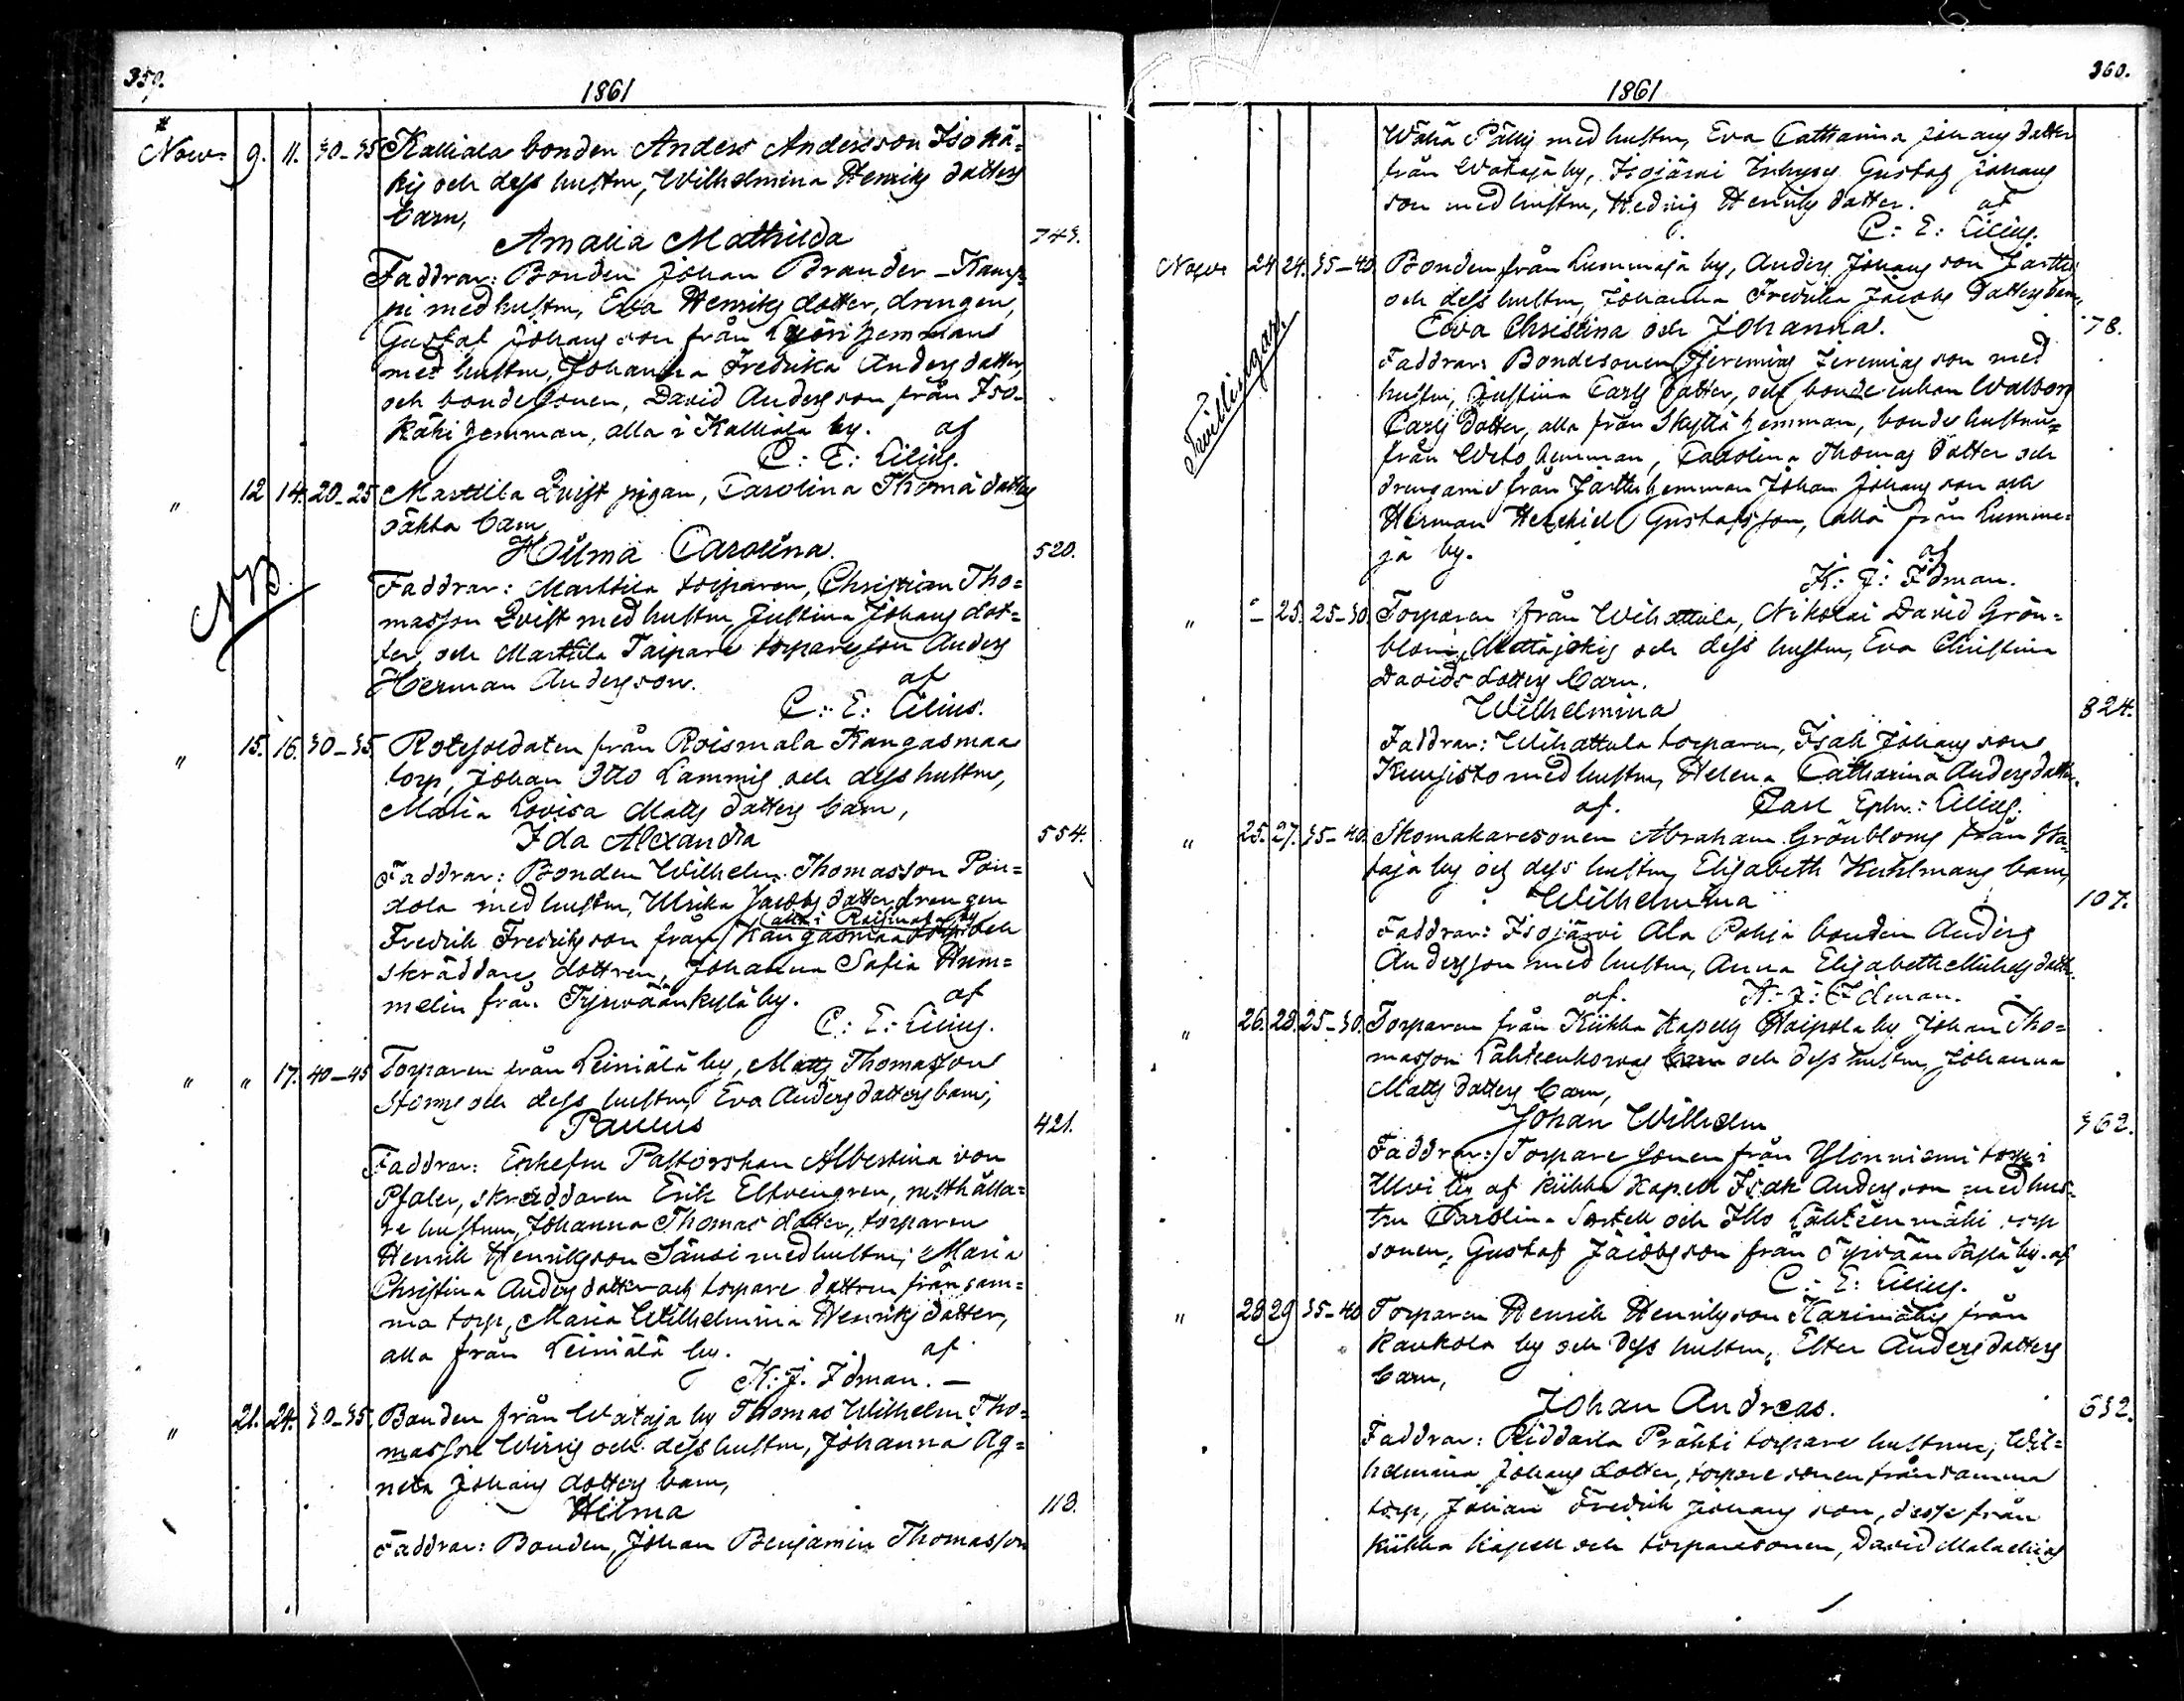 359.
1861
Nov: 9. 11. 30-35 Kalliala bonden Anders Andersson Isokä=
kis och dess hustru, Wilhelmina Henriks dotters
barn,
Amalia Mathilda 743.
Faddrar: Bonden Johan Brander-Kamp=
pi med hustru, Eva Henriks dotter, drengen,
Gustaf Johans son från hemman
med hustru, Johanna Fredrika Anders dotter,
och bondesonen, David Anders son från Iso-
käki hemman, alla i Kalliala by. af
C: E: Cilius.
" 12 14. 20-25 Marttila Qvist pigan, Carolina Thomä dotters
oäkta barn
Hilma Carolina. 520.
NB.
Faddrar: Marttila torparen, Christian Tho=
masson Qvist med hustru Justina Johans dot=
ter, och Marttila Taipare torparesson Anders
Herman Andersson. af
C: E: Cilius.
" 15. 16. 30-35. Rotesoldaten från Roismala Kangasmaa
torp, Johan Otto Lammis och dess hustru,
Maria Lovisa Matts dotters barn,
Ida Alexandra 554.
Faddrar: Bonden Wilhelm Thomasson Pon=
dola med hustru, Ulrika Jacobs dotter, drengen
alla i Roismala by
Fredrik Fredriksson från Kangasmaa torp och
skräddare dottren, Johanna Sofia Hum=
melin från Tyrväänkylä by. af
C: E: Cilius.
" " 17. 40-45 Torparen från Leiniälä by, Matts Thomasson
och dess hustru, Eva Anders dotters barn,
Paulus 421.
Faddrar: Enkefru Pastorskan Albertina von
Pfaler, skräddaren Erik Elfvengren, resthålla=
re hustrun, Johanna Thomas dotter, torparen
Henrik Henriksson med hustru, Maria
Christina Anders dotter och torpare dottren från sam=
ma torp, Maria Wilhelmina Henriks dotter,
alla från Leiniälä by. af
K: J: Idman. -
" 21. 24. 30-35. Bonden från Wataja by Thomas Wilhelm Tho=
masson och dess hustru, Johanna Ag=
neta Johans dotters barn,
Hilma 118.
Faddrar: Bonden, Johan Benjamin Thomasson
360.
1861
Wähä Pällij med hustru, Eva Catharina Johans dotter
från Wataja by, Isojärvi Inhyses Gustaf Johans
son med hustru, Hedvig Henriks dotter. af
C: E: Cilius.
Nov: 24 24. 35-40. Bonden från Lummaja by, Anders Johans son Jartti
och dess hustru, Johanna Fredrika Jacobs dotters barn,
Eva Christina och Johanna. 78.
Tvillingar.
Faddrar: Bondesonen Jeremias Jeremias son med
hustru, Justina Carls dotter, och bonde enkan Walborg
Carls dotter, alla från Skyttä hemman, bonde hustrun
från hemman, Carolina Thomas dotter och
drengarne från Jartti hemman Johan Johans son och
Herman Hezekiel Gustafsson, alla från Lumma=
ja by. af
K: J: Idman.
" - 25. 25-30. Torparen från Wihattula, Nikolai David Grön=
blom, och dess hustru, Eva Christina
Davids dotters barn.
Wilhelmina 824.
Faddrar: Wihattula torparen, Isak Johans son
Kuusisto med hustru, Helena Catharina Anders dotter.
af. Carl Ephr: Cilius.
" 25. 27. 35-40. Skomakaresonen Abraham Grönbloms från Wa=
taja by och dess hustru, Elisabeth Kuhlmans barn,
Wilhelmina 107.
Faddrar: Isojärvi Ala Pohja bonden Anders
Andersson med hustru, Anna Elisabeth Michels dotter.
af. K: J: Idman.
" 26. 28. 25-30. Torparen från Kiikka Kapells Haipola by Johan Tho=
masson Lähteenkorvas och dess hustru, Johanna
Matts dotters barn,
Johan Wilhelm 362.
Faddrar: Torpare sonen från Ylinniemi torp i
Ulvi by af Kiikka Kapell Isak Anders son med hus=
tru Carolina och Illo Lähteenmäki torp
sonen, Gustaf Jacobsson från Tyrväänkylä by. af
C: E: Cilius.
" 28 29 35-40 Torparen Henrik Henriksson Karimäkis från
Kaukola by och dess hustru, Ester Anders dotters
barn,
Johan Andreas. 632.
Faddrar: Riddaila Prähti torpare hustrun, Wil=
helmina Johans dotter, torpare sonen från samma
torp, Johan Fredrik Johans son, desse från
Kiikka Kapell och torparesonen, David Malachias